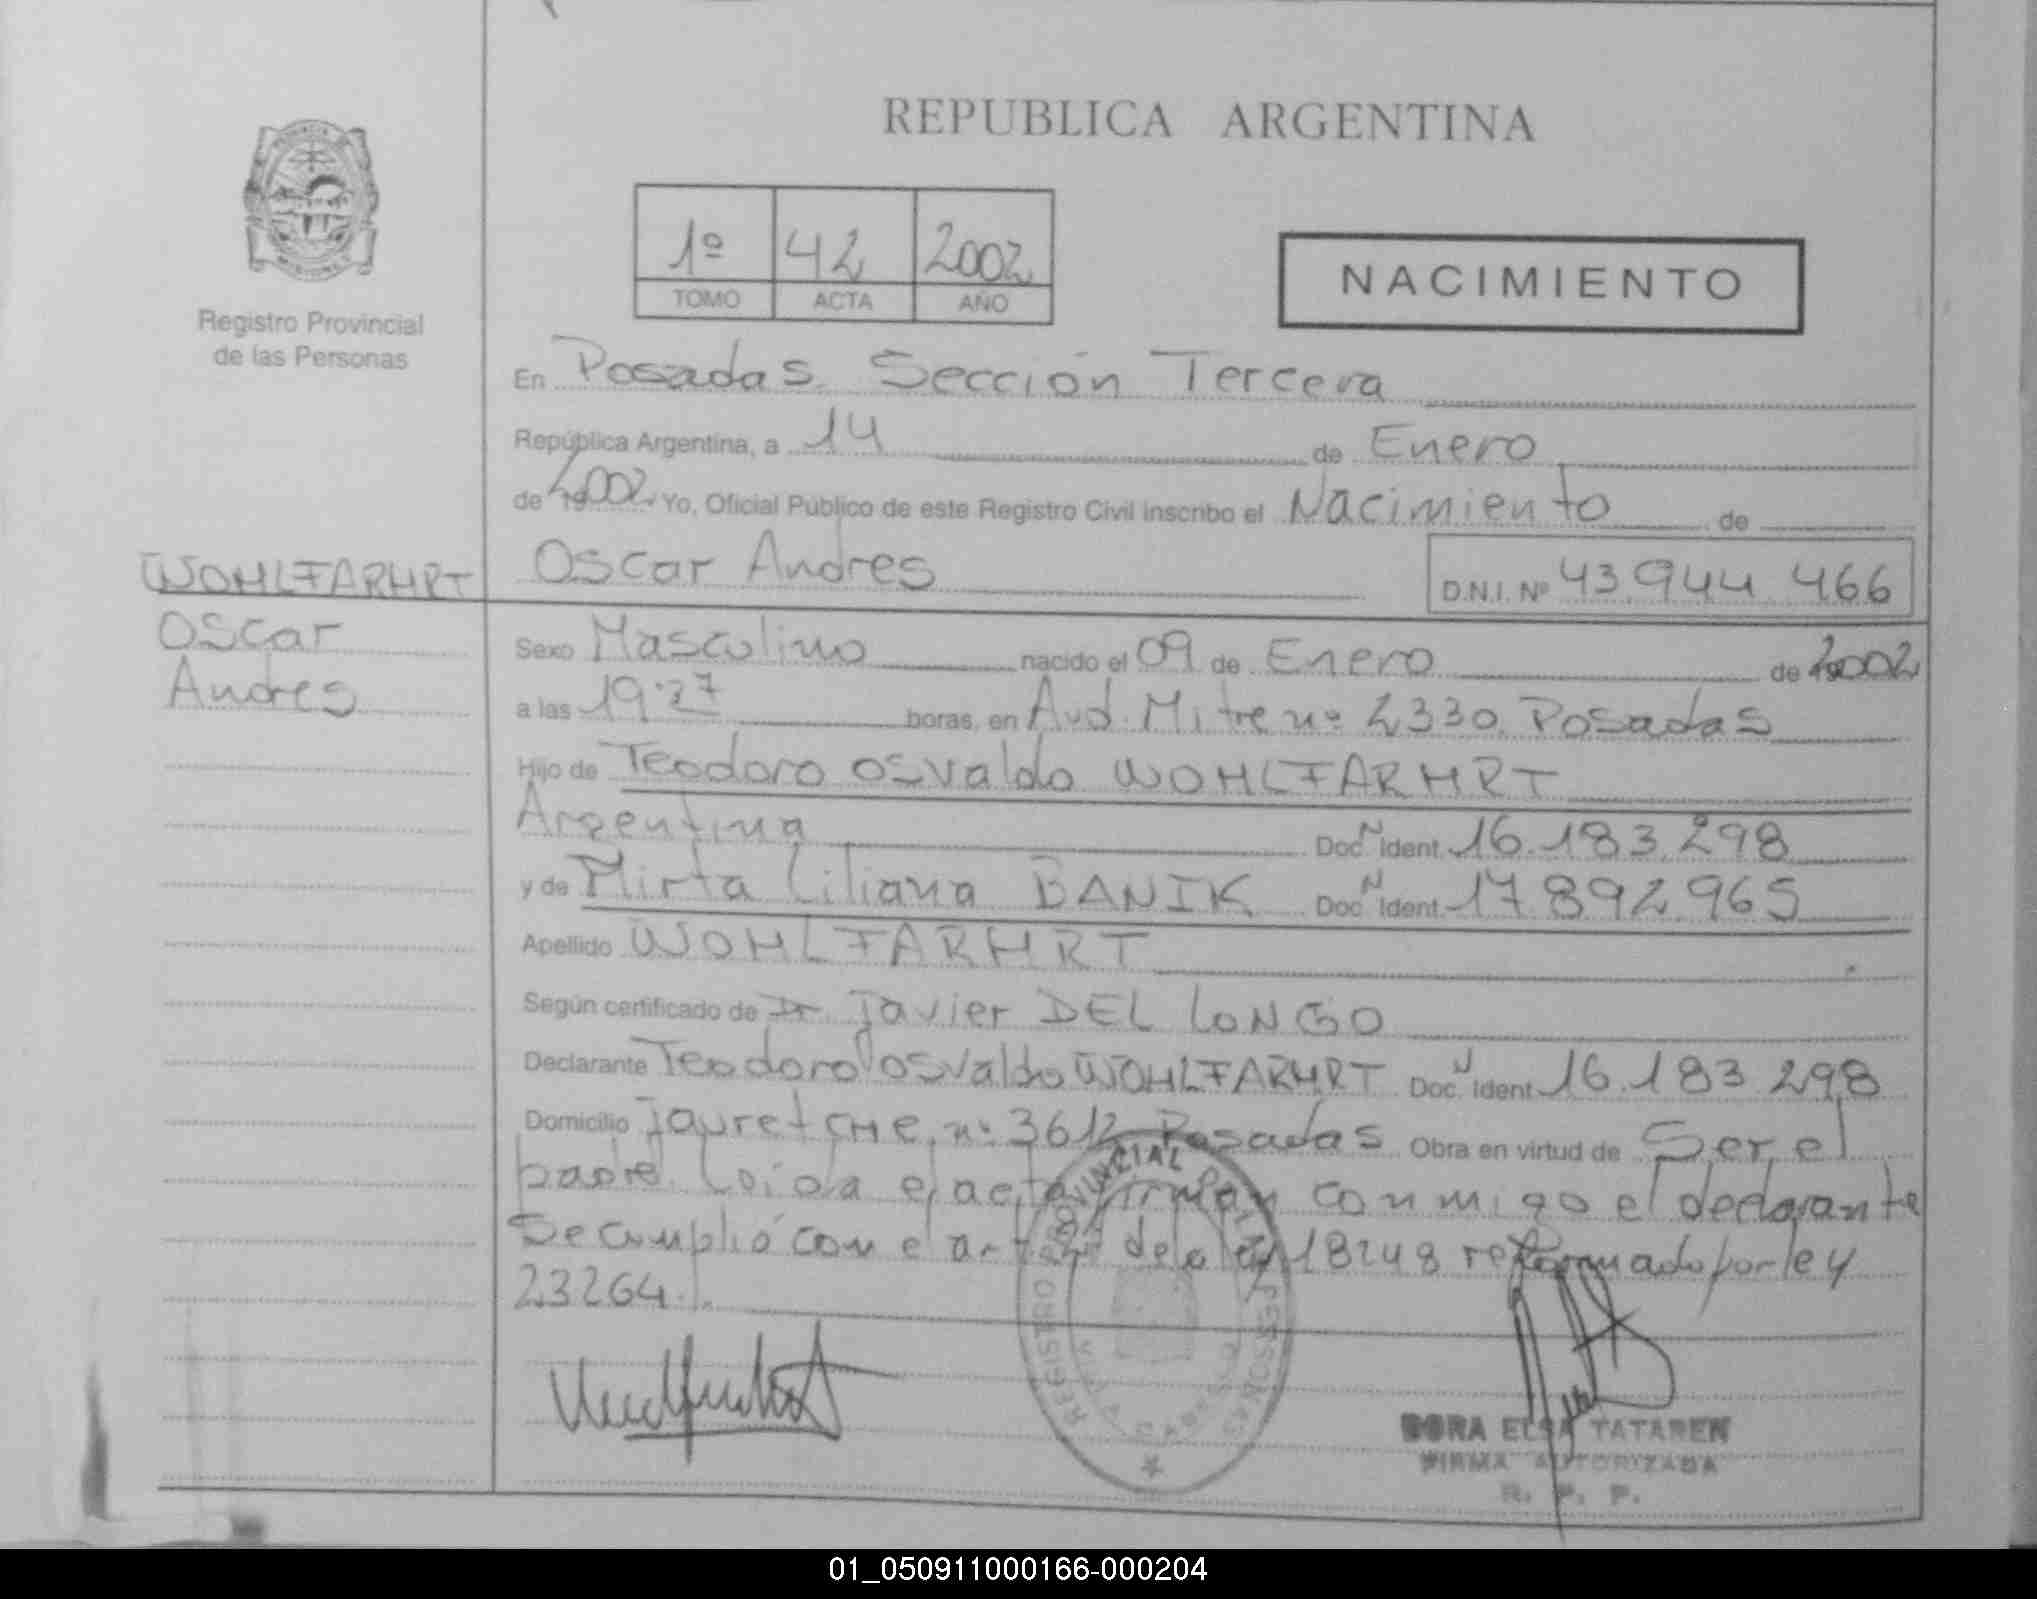 REPUBLICA ARGENTINA
1º 42 2002
TOMO ACTA AÑO
NACIMIENTO
Registro Provincial
de las Personas
En Posadas Sección Tercera
República Argentina, a 14 de Enero
de 2002 Yo, Oficial Público de este Registro Civil inscribo el Nacimiento de
WOHLFARHRT Oscar Andres D.N.I. Nº 43.944.466
Oscar
Andres
Sexo Masculino nacido el 09 de Enero de 2002
a las 19:27 horas, en Avd. Mitre nº 2330. Posadas
Hijo de Teodoro Osvaldo WOHLFARHRT
Argentina Doc. N Ident. 16.183.298
y de Mirta Liliana BANIK Doc. N Ident. 17.892.965
Apellido WOHLFARHRT
Según certificado de Dr. Javier DEL LONGO
Declarante Teodoro Osvaldo WOHLFARHRT Doc. N Ident. 16.183.298
Domicilio Jauretche nº 3612 Posadas Obra en virtud de Ser el
padre. Leída el acta firman conmigo el declarante
Se cumplió con el art de la ley 18248 reformado por ley
23264.
REGISTRO PROVINCIAL DE LAS PERSONAS
DORA ELSA TATAREN
FIRMA AUTORIZADA
R. P. P.
01_050911000166-000204